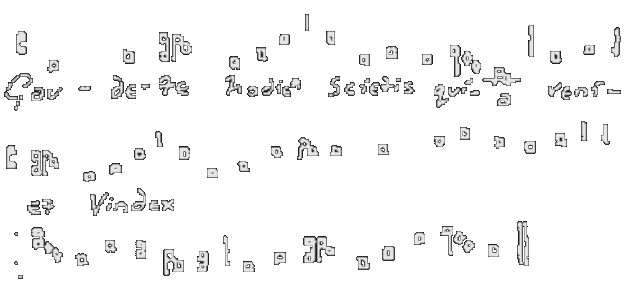 Gau - de-te hodie scietis qui-a veni-
et Vindex